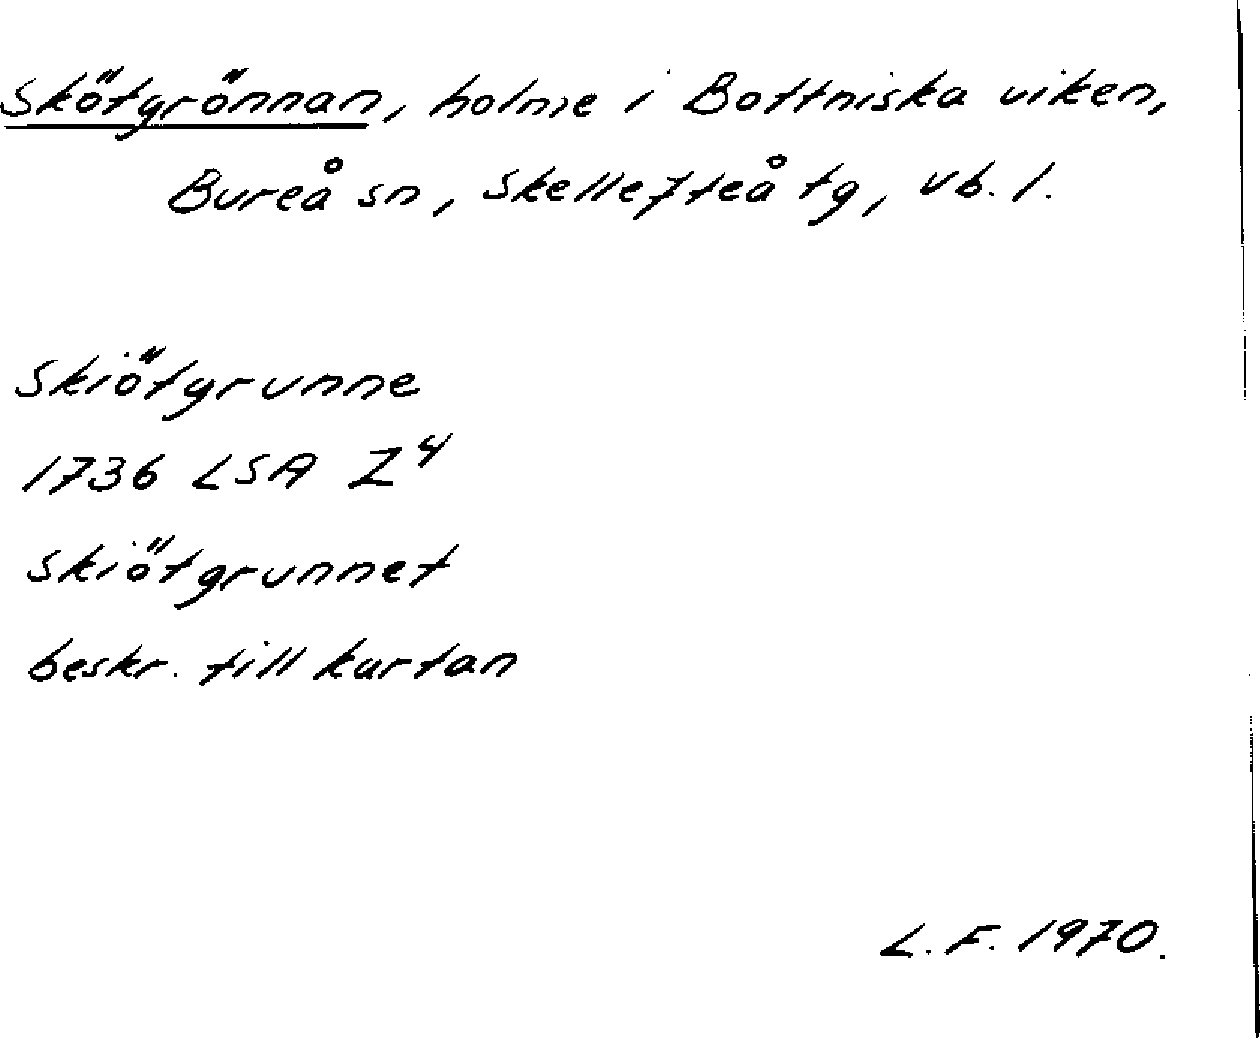 Skötgrönnan, holme i Bottniska viken,
Bureå sn, Skellefteå tg, Vb. l.
Skiötgrunne
1736 LSA Z⁴
Skiötgrunnet
beskr. till kartan
L. F. 1970.